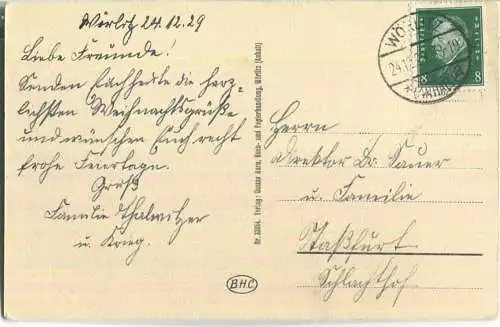 Wörlitz 24.12.29
Liebe Freunde!
Senden Euch heute die herz-
lichsten Weihnachtsgrüße
und wünschen Euch recht
frohe Feiertage.
Gruß
Familie Thalwitzer
u. Krieg.
Nr. 33864 Verlag: Gustav Horn, Buch- und Papierhandlung, Wörlitz (Anhalt)
BHC
WÖRL
24.12
8 8
Herrn
Direktor Dr. Sauer
u. Familie
Staßfurt
Schlachthof